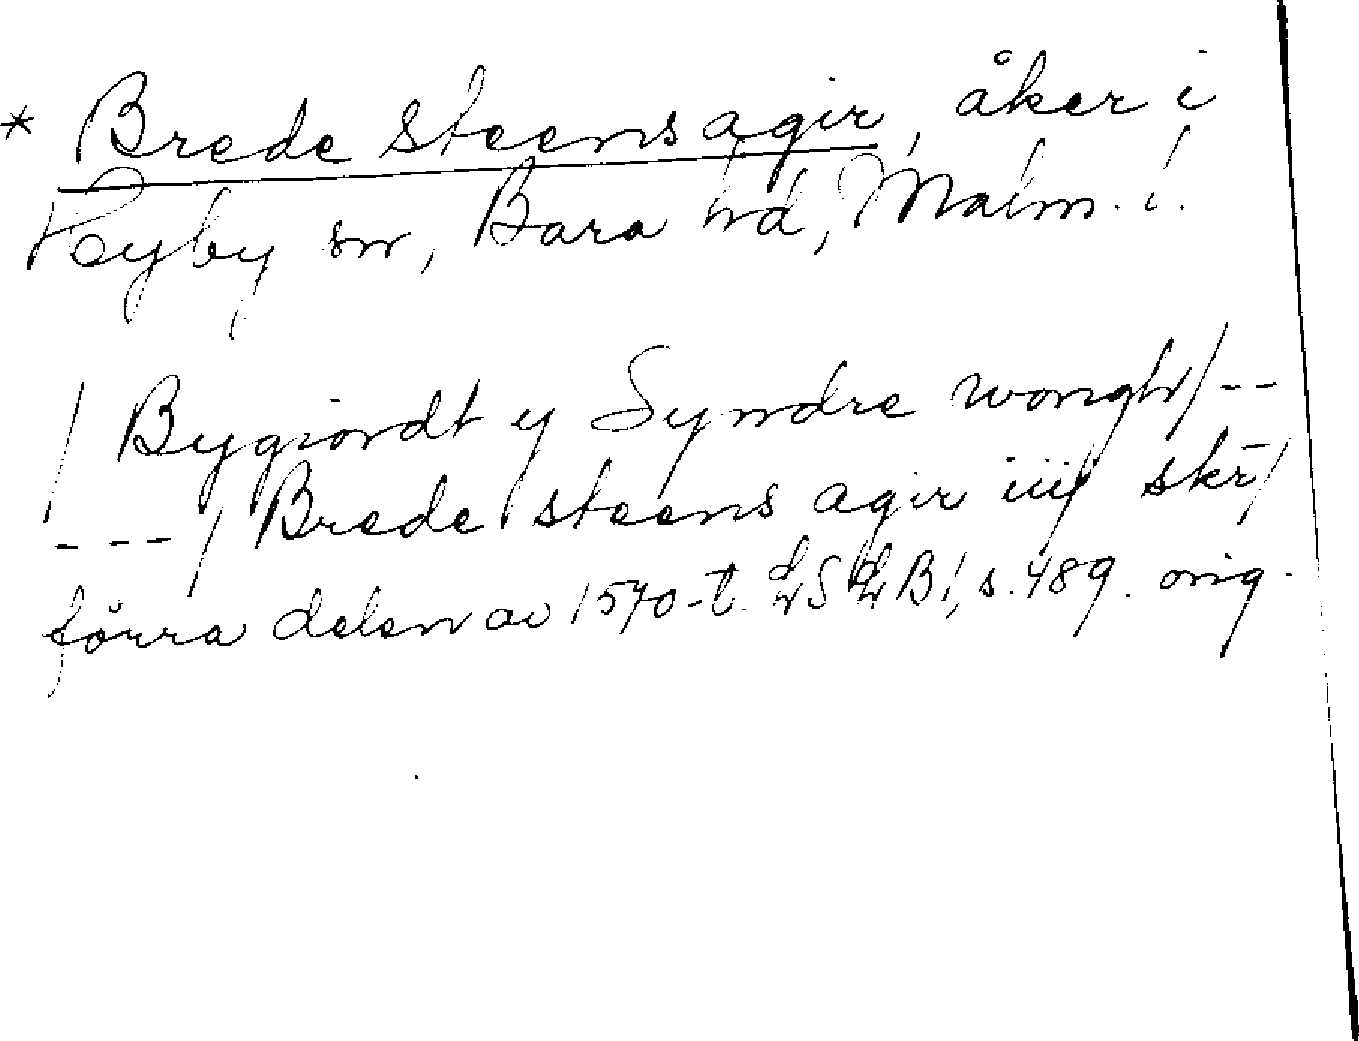 * Brede steens agir, åker i
Hyby sn, Bara hd, Malm. l.
/ Bygiordt y Syndre wongh/--
---/ Brede steens agir iiij skr̄/
förra delen av 1570-t. LSLB1, s. 489. orig.